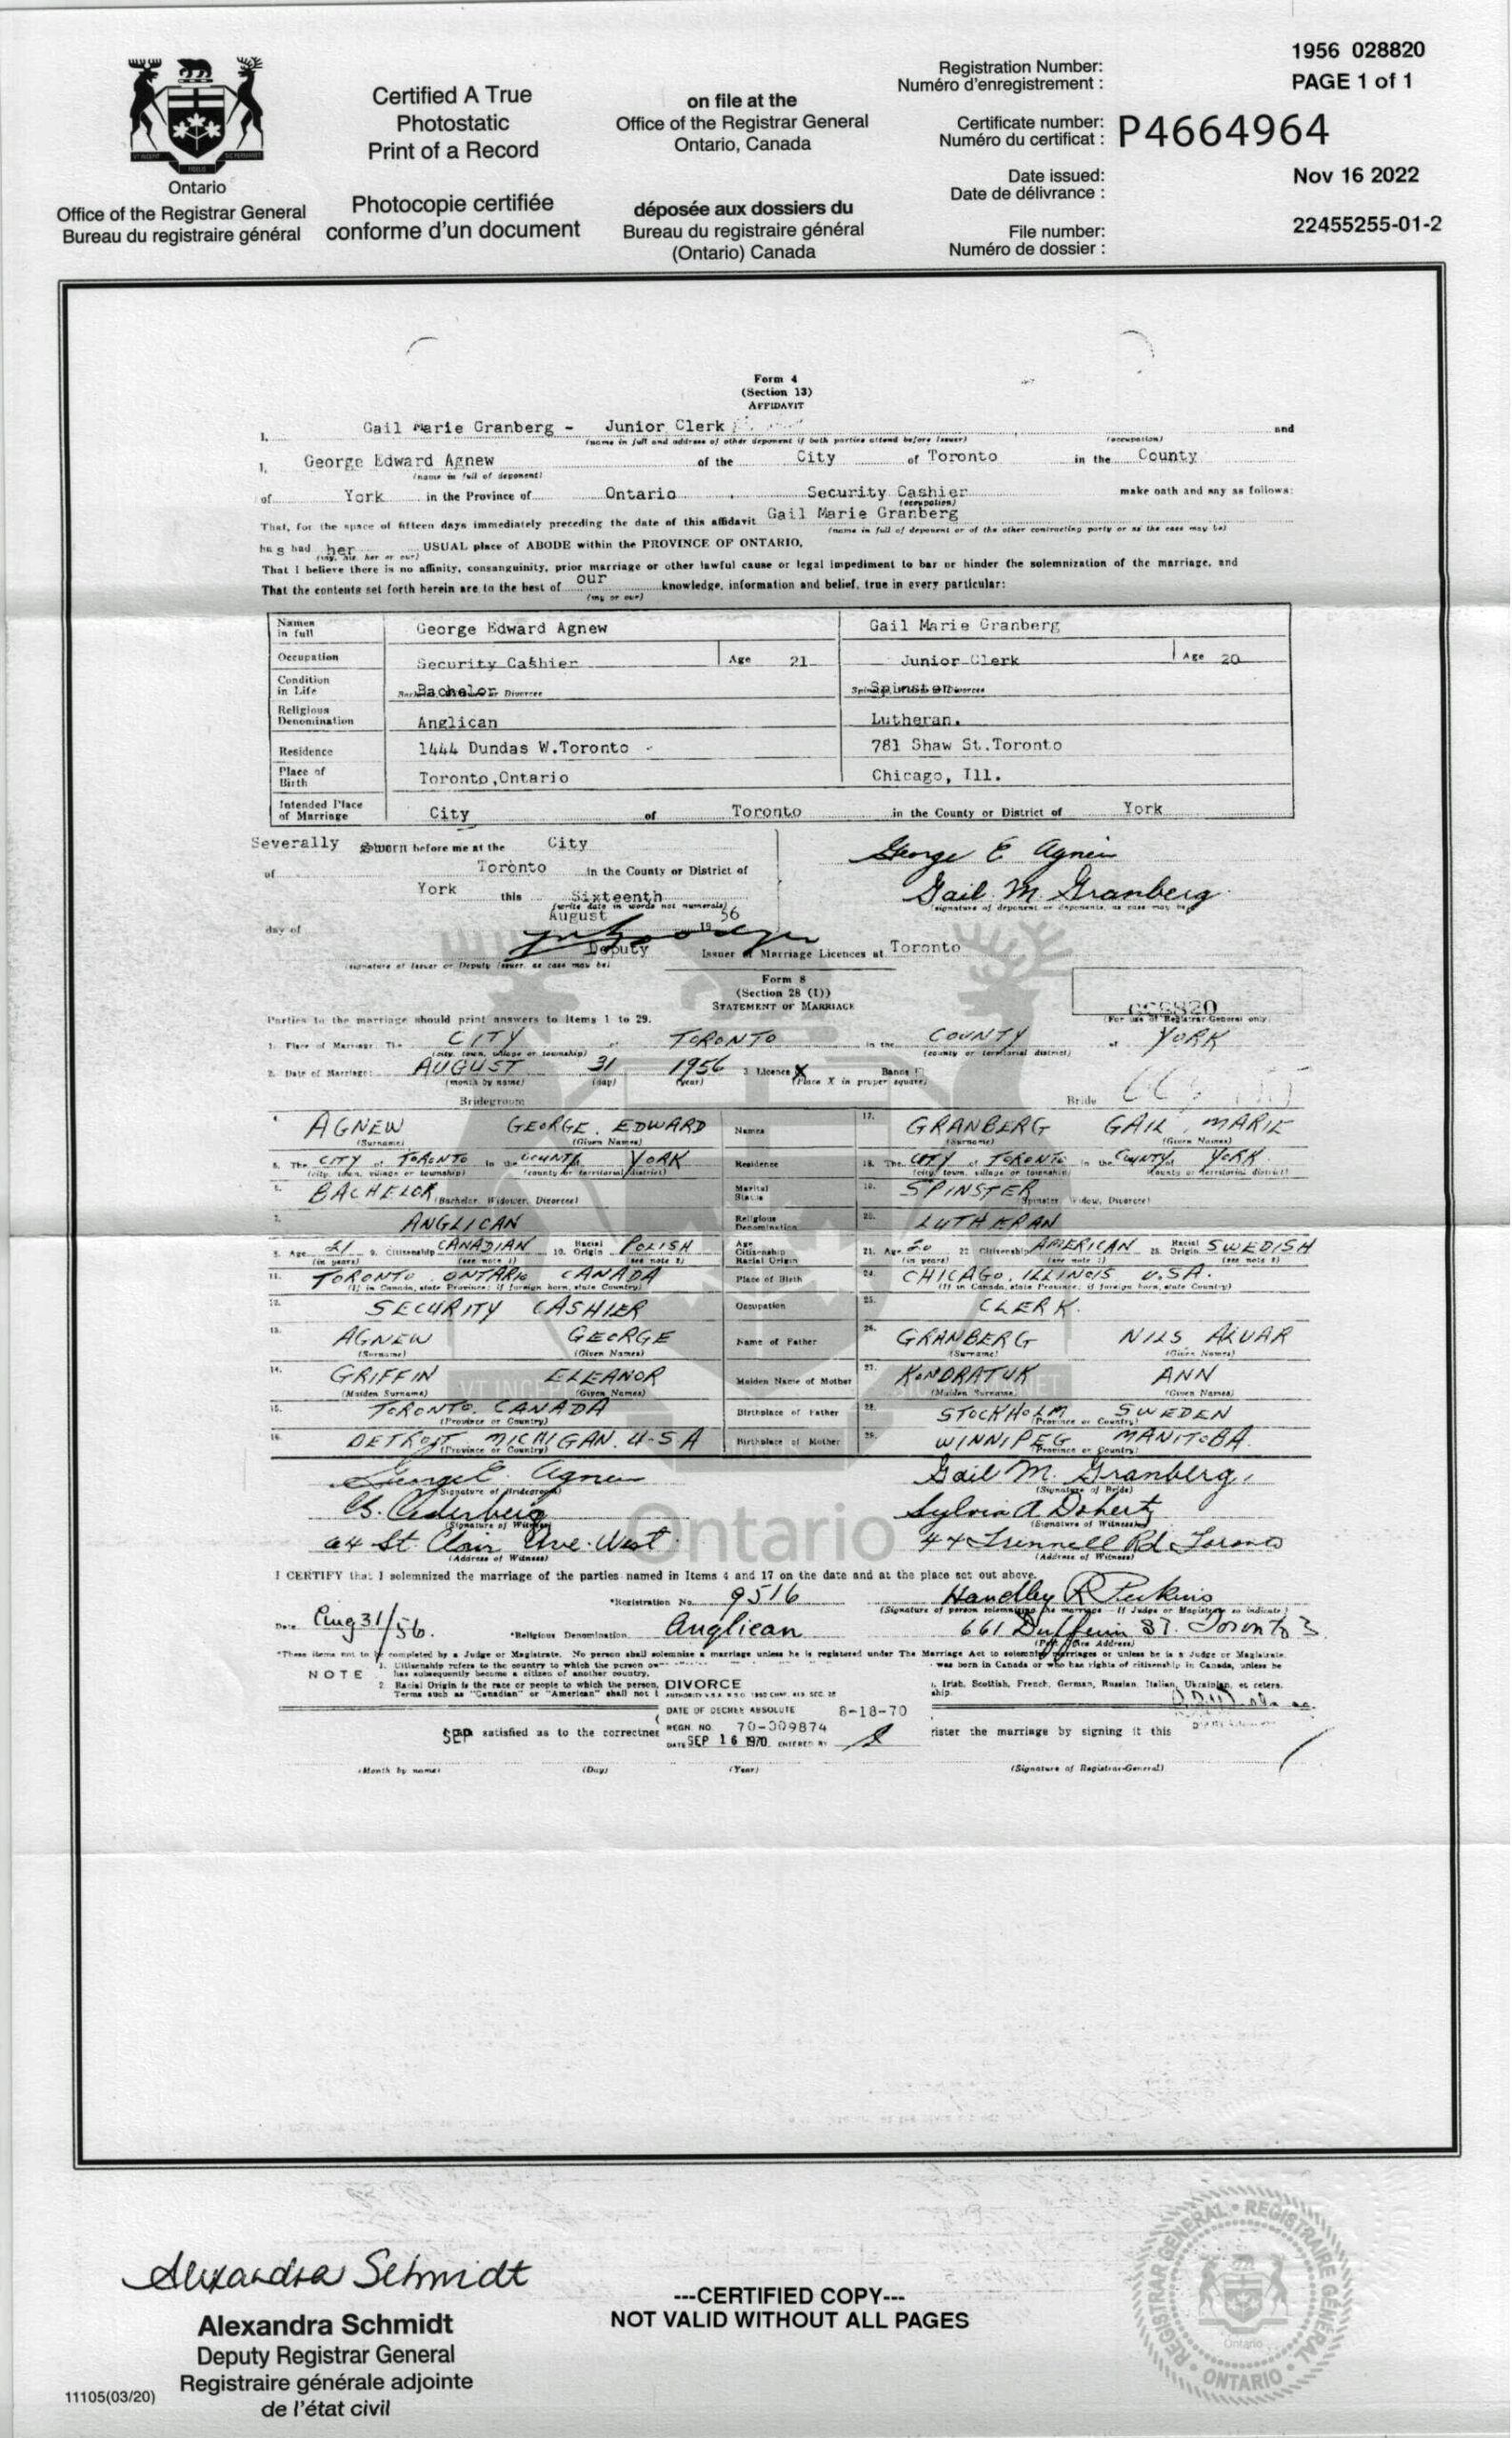 1956 028820
Registration Number:
Numéro d'enregistrement :
PAGE 1 of 1
Certified A True
Photostatic
Print of a Record
Photocopie certifiée
conforme d'un document
on file at the
Office of the Registrar General
Ontario, Canada
déposée aux dossiers du
Bureau du registraire général
(Ontario) Canada
Certificate number:
Numéro du certificat :
P4664964
Date issued:
Date de délivrance :
Nov 16 2022
File number:
Numéro de dossier :
22455255-01-2
Ontario
Office of the Registrar General
Bureau du registraire général
Form 4
(Section 13)
AFFIDAVIT
I, Gail Marie Granberg - Junior Clerk and
(name in full and address of other deponent if both parties attend before Issuer) (occupation)
I, George Edward Agnew of the City of Toronto in the County
(name in full of deponent)
of York in the Province of Ontario, Security Cashier make oath and say as follows:
(occupation)
That, for the space of fifteen days immediately preceding the date of this affidavit Gail Marie Granberg
(name in full of deponent or of the other contracting party or as the case may be)
has had her USUAL place of ABODE within the PROVINCE OF ONTARIO,
(my, his, her or our)
That I believe there is no affinity, consanguinity, prior marriage or other lawful cause or legal impediment to bar or hinder the solemnization of the marriage, and
That the contents set forth herein are to the best of our knowledge, information and belief, true in every particular:
(my or our)
Names in full George Edward Agnew Gail Marie Granberg
Occupation Security Cashier Age 21 Junior Clerk Age 20
Condition in Life Bachelor Divorcee Spinster
Religious Denomination Anglican Lutheran.
Residence 1444 Dundas W.Toronto 781 Shaw St.Toronto
Place of Birth Toronto,Ontario Chicago, Ill.
Intended Place of Marriage City of Toronto in the County or District of York
Severally Sworn before me at the City
of Toronto in the County or District of
York this Sixteenth
(write date in words not numerals)
day of August 1956
George E Agnew
Gail M. Granberg
(signature of deponent or deponents, as case may be)
Deputy Issuer of Marriage Licences at Toronto
(signature of Issuer or Deputy Issuer, as case may be)
Form 8
(Section 28 (1))
STATEMENT OF MARRIAGE
(For use of Registrar-General only)
Parties to the marriage should print answers to items 1 to 29.
1. Place of Marriage: The CITY of TORONTO in the COUNTY of YORK
(city, town, village or township) (county or territorial district)
2. Date of Marriage: AUGUST 31 1956 3. Licence X Banns
(month by name) (day) (year) (Place X in proper square)
Bridegroom Bride
4. AGNEW GEORGE. EDWARD Names 17. GRANBERG GAIL MARIE
(Surname) (Given Names) (Surname) (Given Names)
5. The CITY of TORONTO in the COUNTY of YORK Residence 18. The CITY of TORONTO in the COUNTY of YORK
(city, town, village or township) (county or territorial district) (city, town, village or township) (county or territorial district)
6. BACHELOR (Bachelor, Widower, Divorcee) Marital Status 19. SPINSTER (Spinster, Widow, Divorcee)
7. ANGLICAN Religious Denomination 20. LUTHERAN
8. Age 21 9. Citizenship CANADIAN 10. Racial Origin POLISH Age Citizenship Racial Origin 21. Age 20 22. Citizenship AMERICAN 23. Racial Origin SWEDISH
(in years) (see note 1) (see note 2) (in years) (see note 1) (see note 2)
11. TORONTO ONTARIO CANADA Place of Birth 24. CHICAGO, ILLINOIS U.S.A.
(If in Canada, state Province; if foreign born, state Country) (If in Canada, state Province; if foreign born, state Country)
12. SECURITY CASHIER Occupation 25. CLERK.
13. AGNEW GEORGE Name of Father 26. GRANBERG NILS ALVAR
(Surname) (Given Names) (Surname) (Given Names)
14. GRIFFIN ELEANOR Maiden Name of Mother 27. KONDRATUK ANN
(Maiden Surname) (Given Names) (Maiden Surname) (Given Names)
15. TORONTO. CANADA Birthplace of Father 28. STOCKHOLM SWEDEN
(Province or Country) (Province or Country)
16. DETROIT MICHIGAN. U-S A Birthplace of Mother 29. WINNIPEG MANITOBA.
(Province or Country) (Province or Country)
George E. Agnew Gail M. Granberg
(Signature of Bridegroom) (Signature of Bride)
G. Cederberg Sylvia A Doherty
(Signature of Witness) (Signature of Witness)
St. Clair Ave. West 44 Rd Toronto
(Address of Witness) (Address of Witness)
I CERTIFY that I solemnized the marriage of the parties named in Items 4 and 17 on the date and at the place set out above.
*Registration No. 9516 Handley R Perkins
(Signature of person solemnizing the marriage - If Judge or Magistrate so indicate)
Date Aug 31/56. *Religious Denomination Anglican 661 Dufferin St. Toronto 3.
(Post Office Address)
*These items not to be completed by a Judge or Magistrate. No person shall solemnize a marriage unless he is registered under The Marriage Act to solemnize marriages or unless he is a Judge or Magistrate.
NOTE 1. Citizenship refers to the country to which the person was born in Canada or who has rights of citizenship in Canada, unless he
has subsequently become a citizen of another country.
2. Racial Origin is the race or people to which the person, Irish, Scottish, French, German, Russian, Italian, Ukrainian, et cetera.
Terms such as "Canadian" or "American" shall not
DIVORCE
DATE OF DECREE ABSOLUTE 8-18-70
REGN. NO. 70-009874
DATE SEP 16 1970 ENTERED BY
SEP satisfied as to the correctnes rister the marriage by signing it this
(Month by name) (Day) (Year) (Signature of Registrar-General)
VT INCEP
Ontario
Alexandra Schmidt
Alexandra Schmidt
Deputy Registrar General
Registraire générale adjointe
de l'état civil
11105(03/20)
---CERTIFIED COPY---
NOT VALID WITHOUT ALL PAGES
REGISTRAR GENERAL • REGISTRAIRE GÉNÉRAL
Ontario
• ONTARIO •